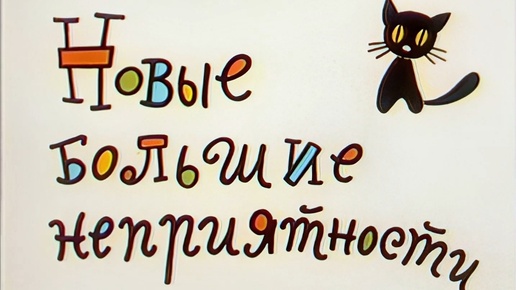 Новые
большие
неприятности